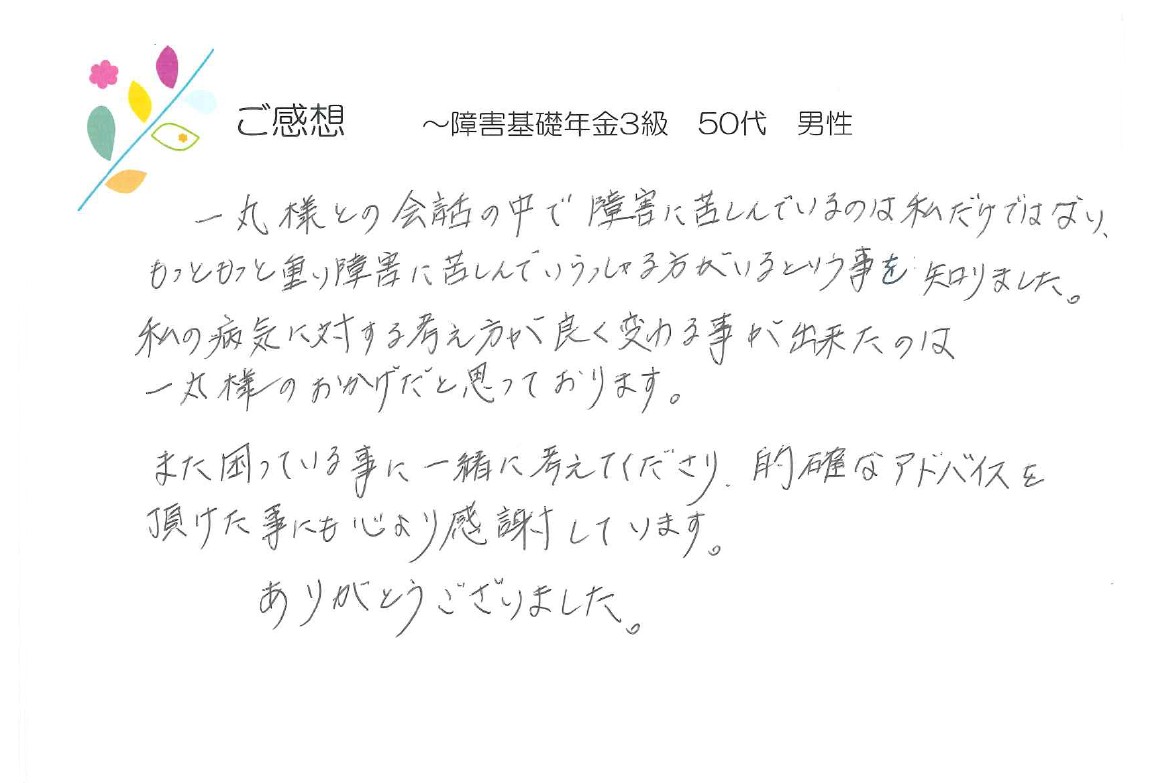 ご感想　～障害基礎年金3級　50代　男性
一丸様との会話の中で障害に苦しんでいるのは私だけではない、
もっともっと重い障害に苦しんでいらっしゃる方がいるという事を知りました。
私の病気に対する考え方が良く変わる事が出来たのは
一丸様のおかげだと思っております。
また困っている事に一緒に考えてくださり、的確なアドバイスを
頂けた事にも心より感謝しています。
ありがとうございました。